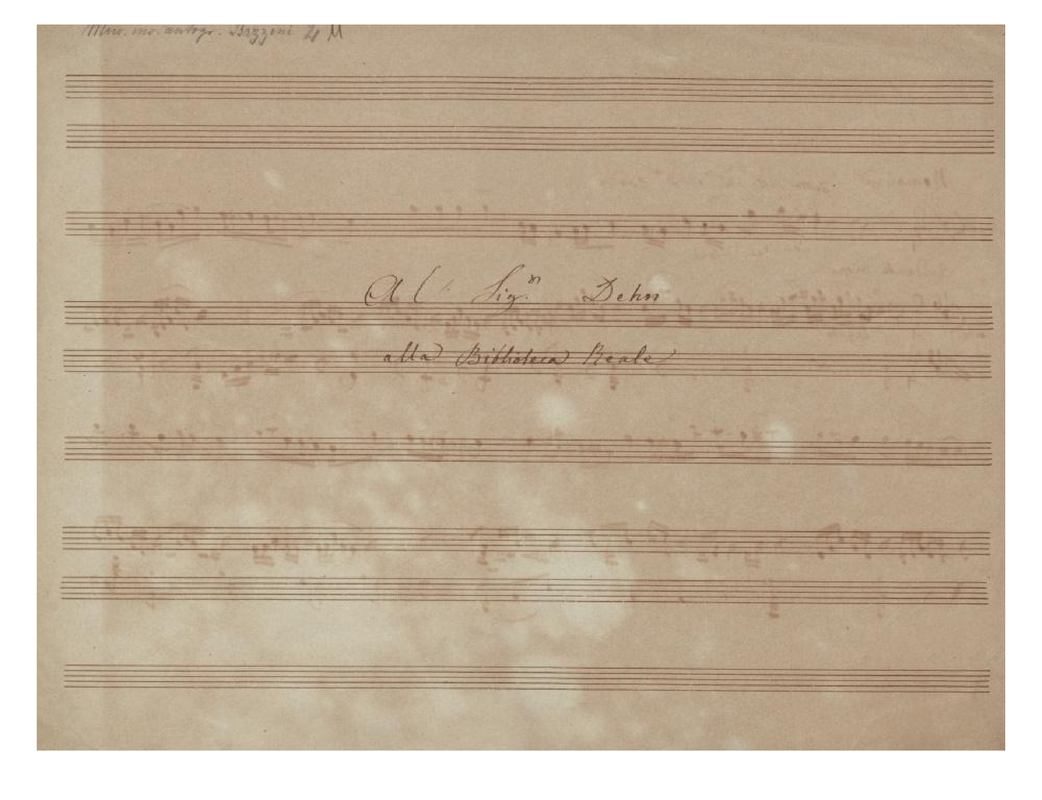 Mus. ms. autogr. Bazzini 4 M
Al Sig.r Dehn
alla Biblioteca Reale